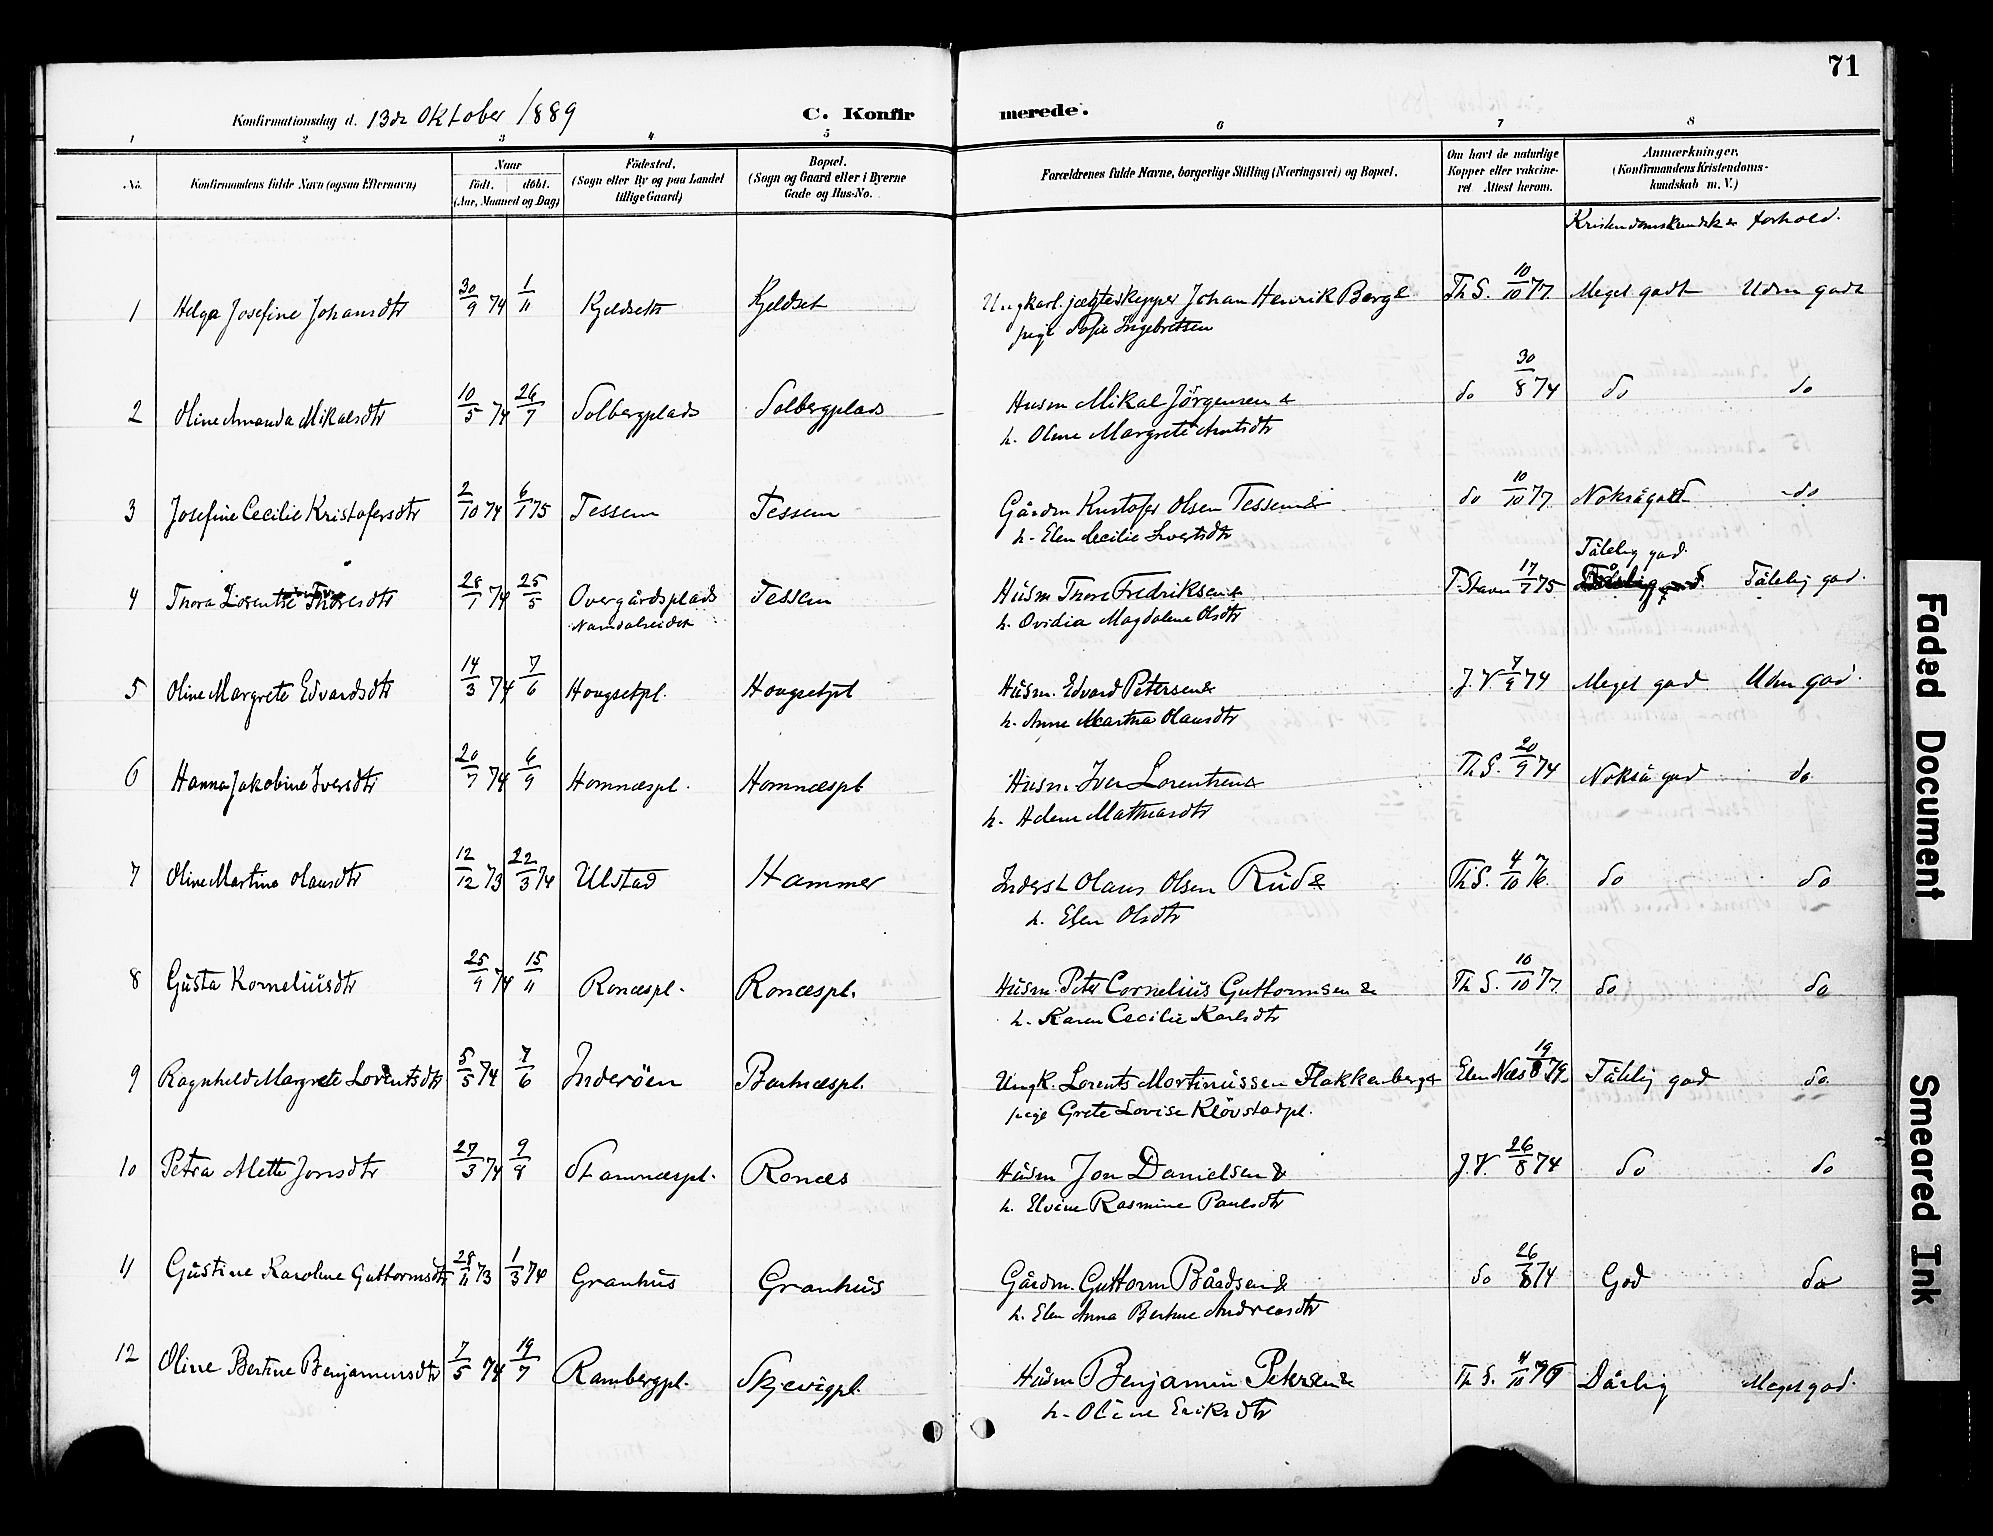 71
Konfirmationsdag d. 13de Oktober 1889 C. Konfirmerede.
1 2 3 4 5 6 7 8
No. Konfirmandens fulde Navn (ogsaa Efternavn) Naar født. døbt. (Aar, Maaned og Dag) Fødested. (Sogn eller By og paa Landet tillige Gaard) Bopæl. (Sogn og Gaard eller i Byerne Gade og Hus-No. Forældrenes fulde Navne, borgerlige Stilling (Næringsvei) og Bopæl. Om havt de naturlige Kopper eller vaccineret Attest herom. Anmærkninger. (Konfirmandens Kristendomskundskab m. V.)
Kristendomskundsk & forhold.
1 Helga Josefine Johansdtr 30/9 74 1/11 Kjeldseth Kjeldset Ungkarl. jægteskipper Johan Henrik Berg & Th S. 10/10 77. Meget godt Udm godt
pige Sofie Ingebretsen
2 Oline Amanda Mikalsdtr 10/5 74 26/7 Solbergplads Solbergplads Husm Mikal Jörgensen & do 30/8 74 do do
h. Oline Margrete Arntsdtr
3 Josefine Cecilie Kristofersdtr 2/10 74 6/1 75 Tessem Tessem Gårdm Kristofer Olsen Tessem & do 10/10 77. Noksågodt do
h. Elen Cecilie Sivertsdtr
4 Thora Lorentse Thoresdtr 28/1 74 25/5 Overgårdsplads Tessem Husm Thore Fredriksen & T. Stavn 17/7 75 Tålelig god. Tålelig god.
Namdalseidet h. Ovidia Magdalene Olsdtr
5 Oline Margrete Edvardsdtr 14/3 74 7/6 Hougsetpl. Hougsetpl Husm. Edvard Petersen & J. V. 7/9 74 Meget god Udm god.
h. Anne Martha Olausdtr
6 Hanna Jakobine Iversdtr 20/7 74 6/9 Homnæspl. Homnæspl Husm. Iver Lorentsen & Th. S. 20/9 74 Nokså god do
h. Helene Mathiasdtr
7 Oline Martine Olausdtr 12/12 73 22/3 74 Ulstad Hammer Inderst Olaus Olsen Rüd & Th S. 4/10 76. do do
h. Elen Olsdtr
8 Gusta Korneliusdtr 25/9 74 15/11 Ronæspl. Ronæspl. Husm. Peter Cornelius Guttormsen & Th S. 10/10 77. do do
h. Karen Cecilie Karlsdtr
9 Ragnhild Margrete Lorentsdtr 5/5 74 7/6 Inderöen Barhæspl. Ungk. Lorents Martinussen Flakkenberg & Elen Næs 19/8 79. Tålelig god do.
pige Grete Lovise Klövstadpl.
10 Petra Alette Jonsdtr 27/3 74 9/8 Stamnæspl. Ronæs Husm Jon Danielsen & J. V. 26/8 74 do do
h. Elvine Rasmine Paulsdtr
11 Gustine Karoline Guttormsdtr 28/11 73 1/3 74 Granhus Granhus Gårdm. Guttorm Bårdsen & do 26/8 74 God do
h. Elen Anna Bertine Andreasdtr
12 Oline Bertine Benjaminsdtr 7/5 74 19/7 Rambergpl. Skjevigpl. Husm Benjamin Petersen & Th S. 4/10 76 Dårlig Meget god.
h. Oline Eriksdtr
Faded Document
Smeared Ink